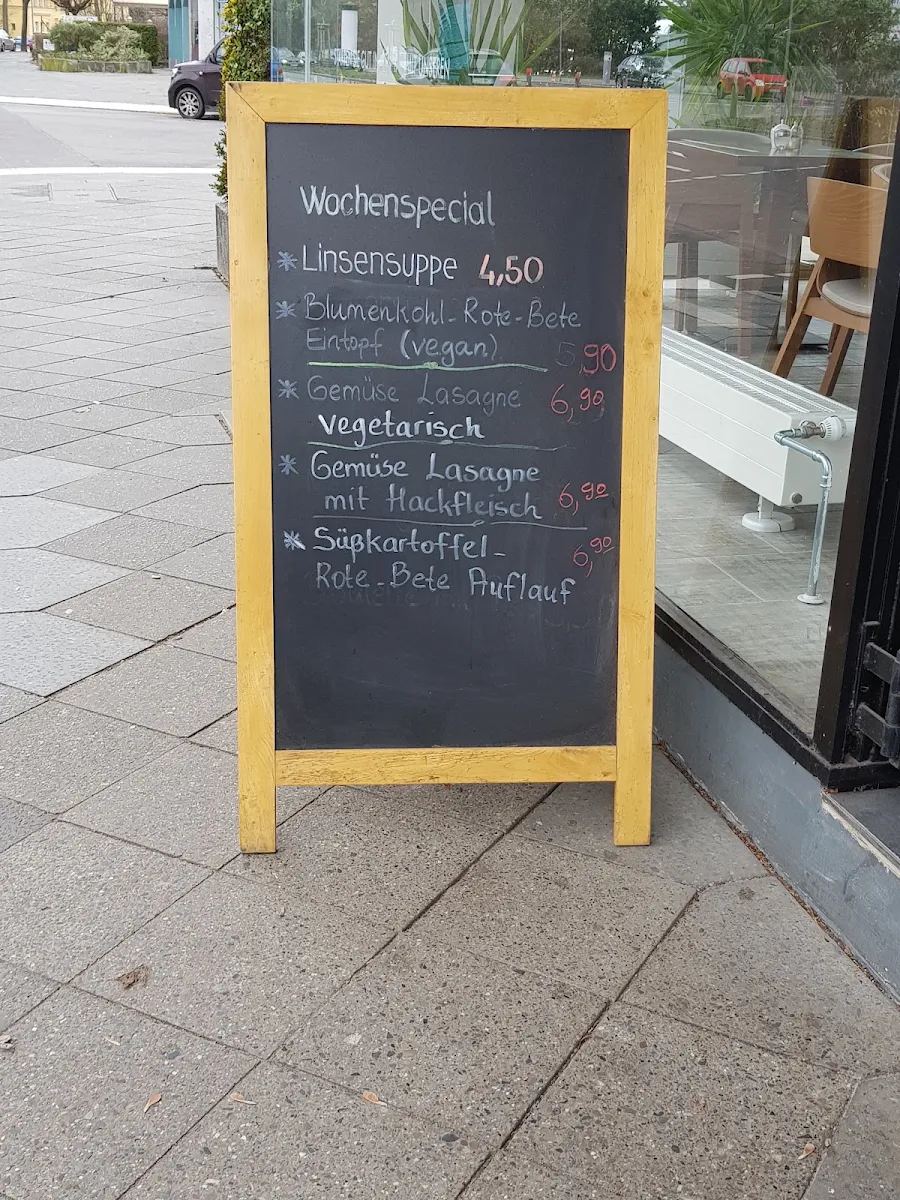 Wochenspecial
* Linsensuppe 4,50
* Blumenkohl-Rote-Bete
Eintopf (vegan) 5,90
* Gemüse Lasagne 6,90
vegetarisch
* Gemüse Lasagne
mit Hackfleisch 6,90
* Süßkartoffel- 6,90
Rote-Bete Auflauf